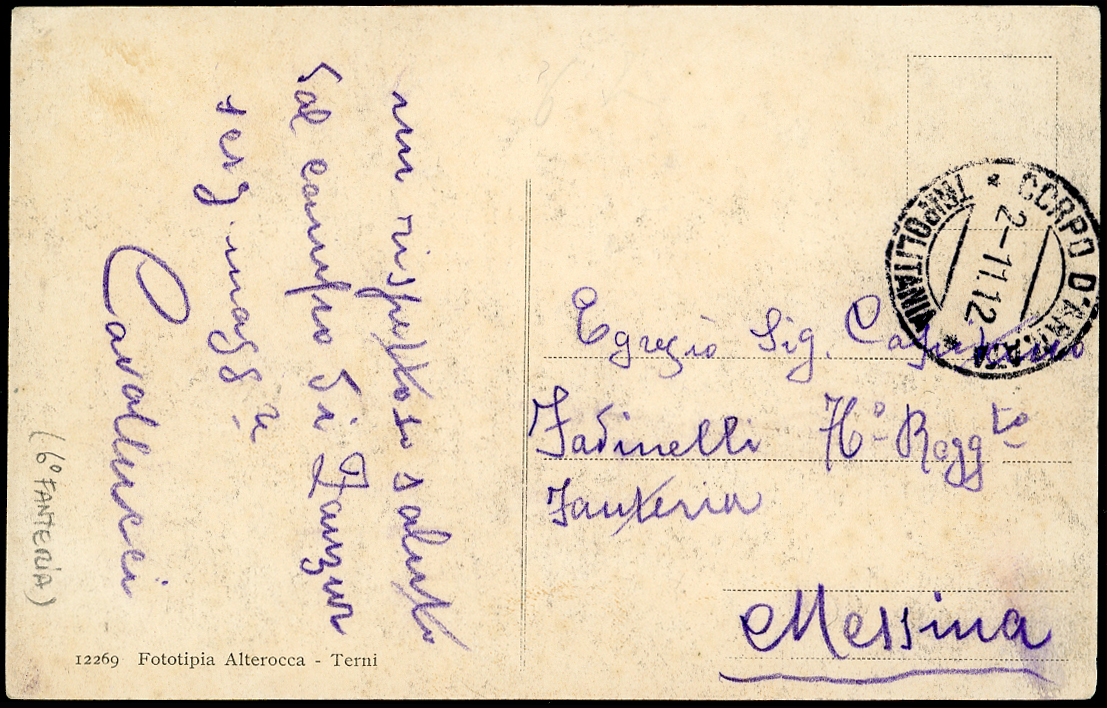 un rispettoso saluto
dal campo di Zanzur
serg. magg.re
Cavallucci
(6° FANTERIA)
12269 Fototipia Alterocca - Terni
CORPO D'ARMATA * TRIPOLITANIA *
2-11.12
Egregio Sig. Capitano
Fadinelli Regg.to
Fanteria
Messina